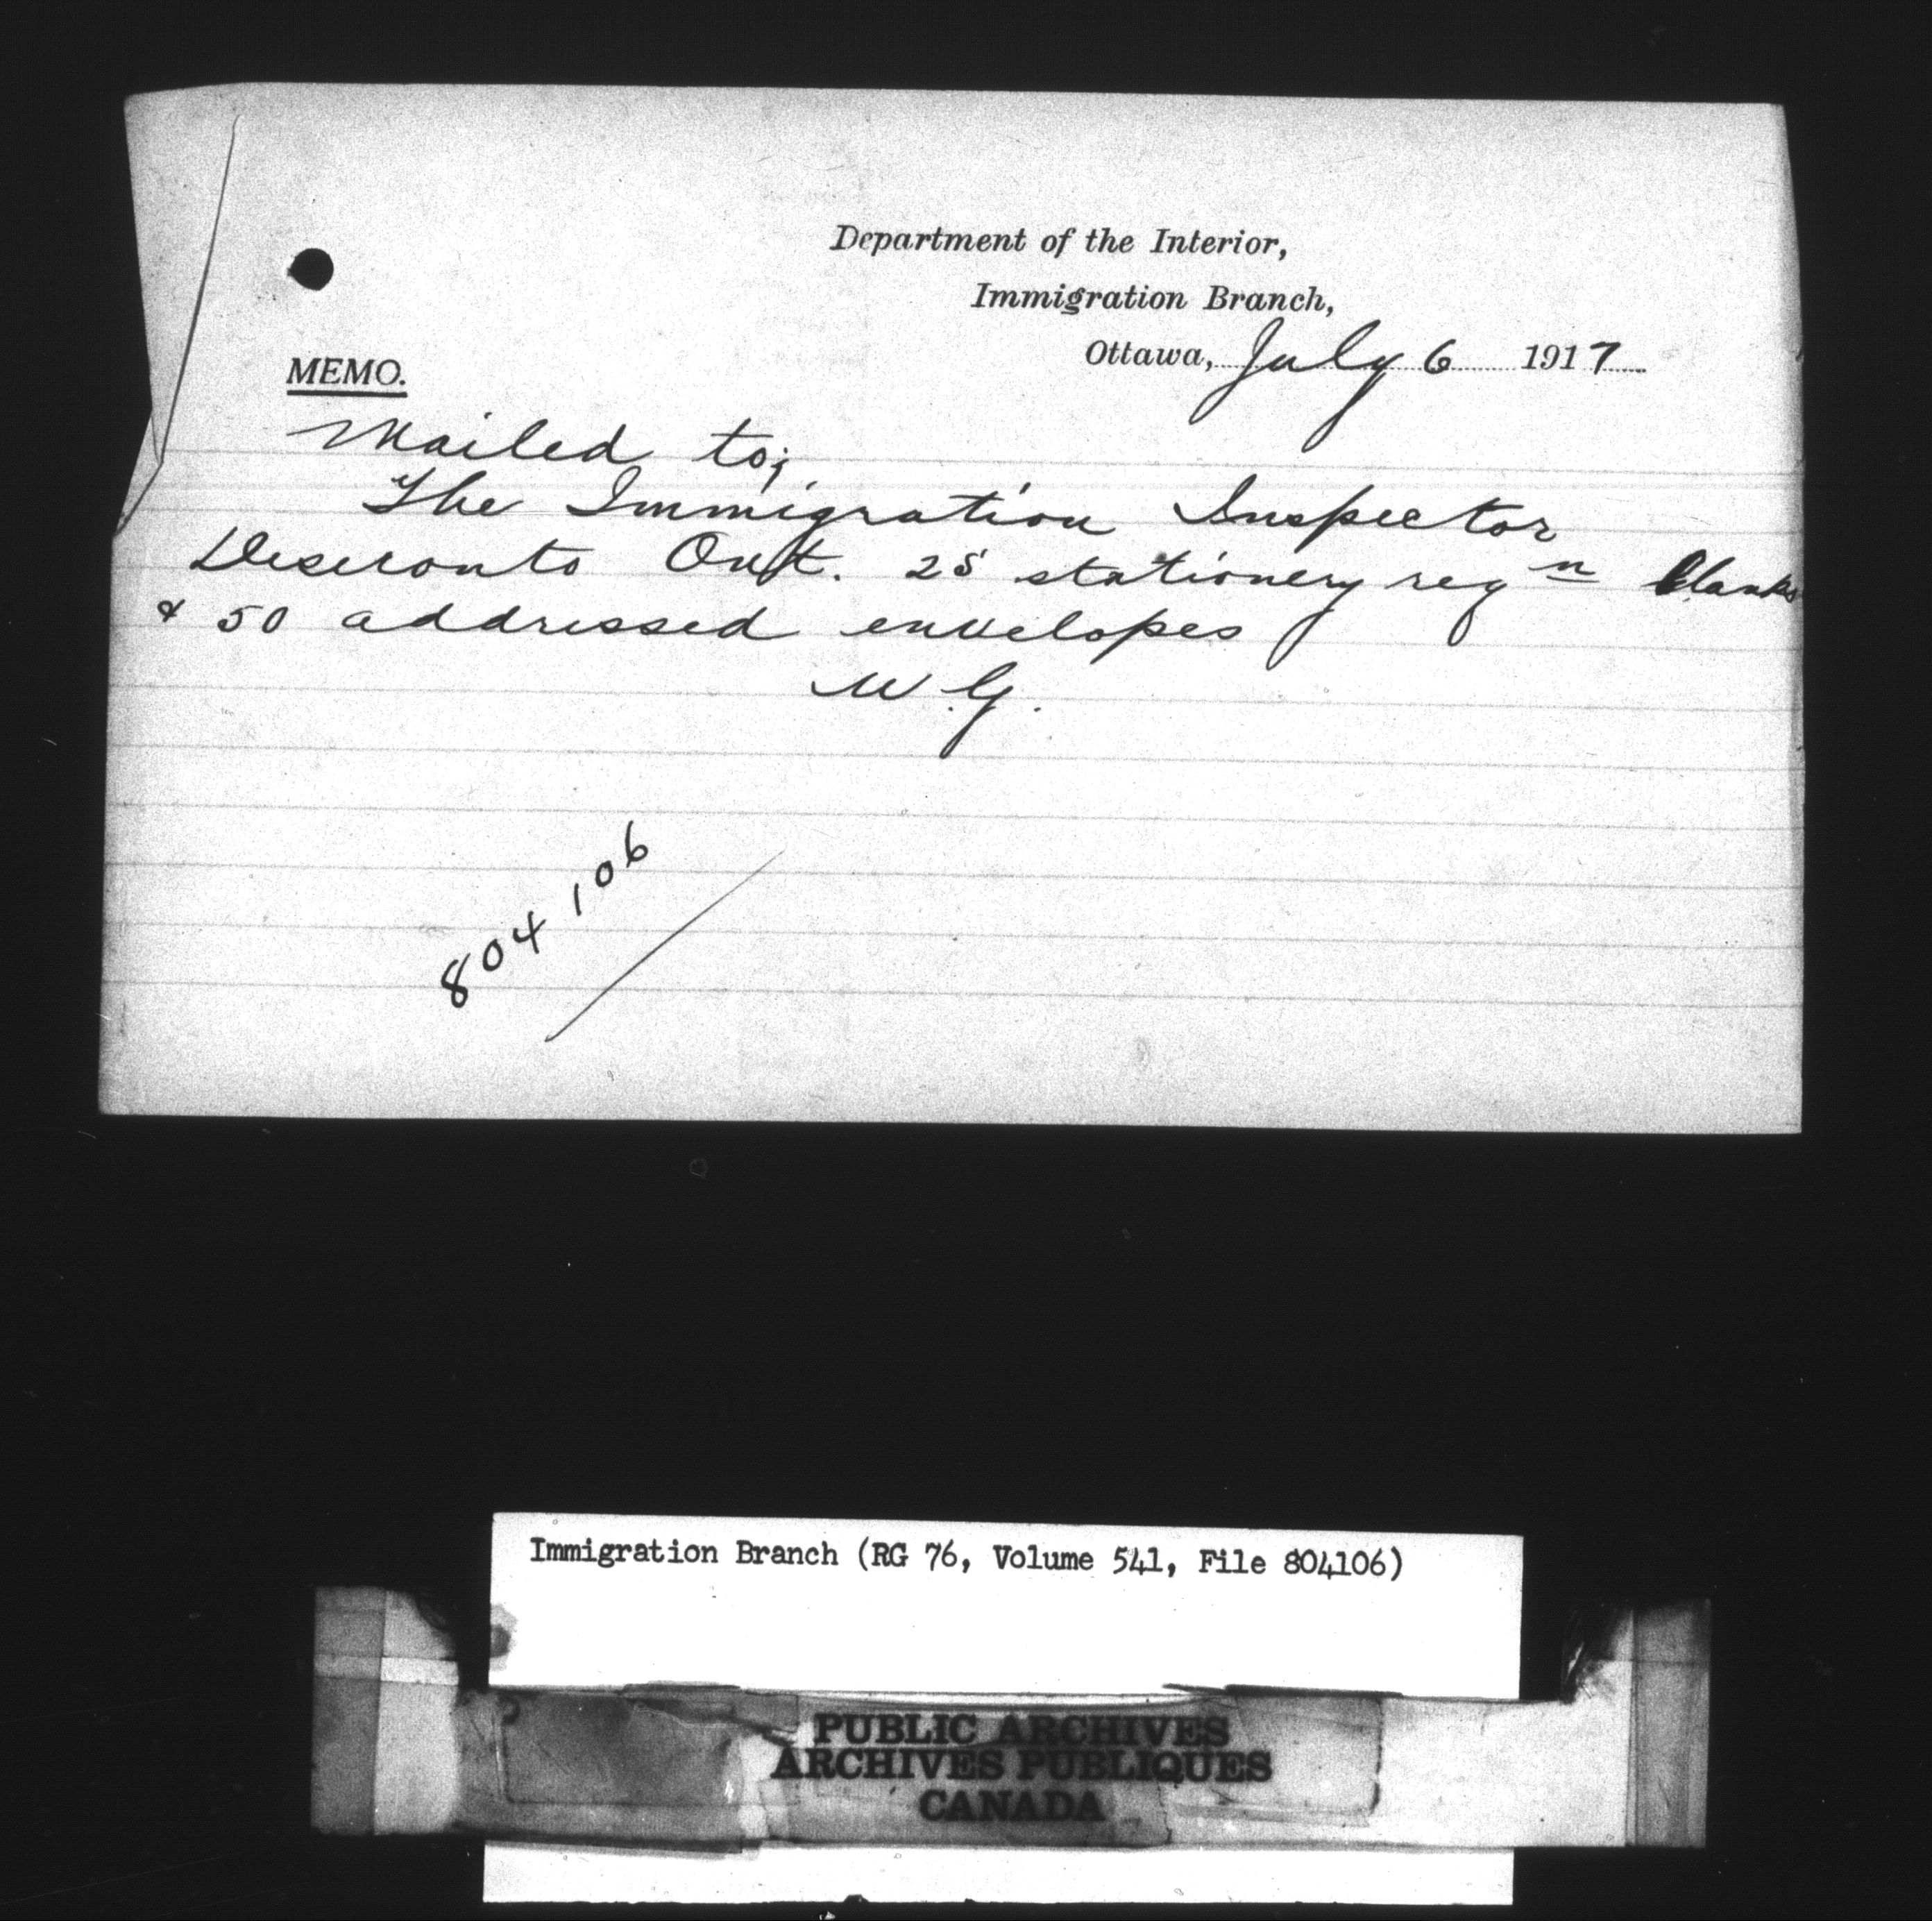 Department of the Interior,
Immigration Branch,
Ottawa, July 6 1917
MEMO.
Mailed to;
The Immigration Inspector
Deseronto Ont. 25 stationery reqn blanks
& 50 addressed envelopes
W.G.
804106
Immigration Branch (RG 76, Volume 541, File 804106)
PUBLIC ARCHIVES
ARCHIVES PUBLIQUES
CANADA